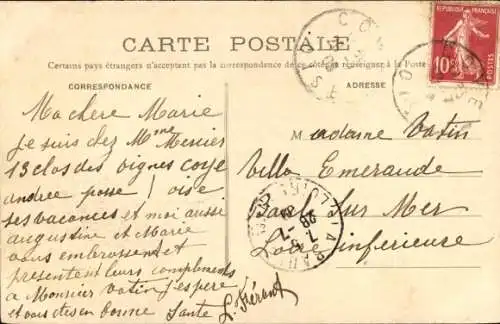 CARTE POSTALE
Certains pays étrangers n'acceptent pas la correspondance de ce côté, se renseigner à la Poste
CORRESPONDANCE
ADRESSE
REPUBLIQUE FRANÇAISE
10c
POSTES
Ma chere Marie
Je suis chez Mme Mercier
13 clos des vignes
andree passe
ses vacances et moi aussi
augustine et Marie
vous embrassent et
presentent leurs compliments
a Monsieur Vatin j'espere
et vous etes en bonne Sante
Madame Vatin
Villa Emeraude
sur Mer
Loire inferieure